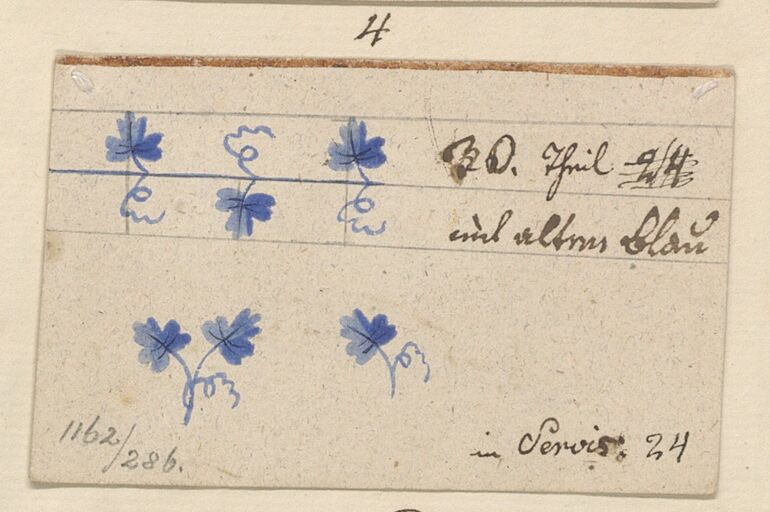 4
Theil
mit altem Blau
in Servis: 24
1162/286.